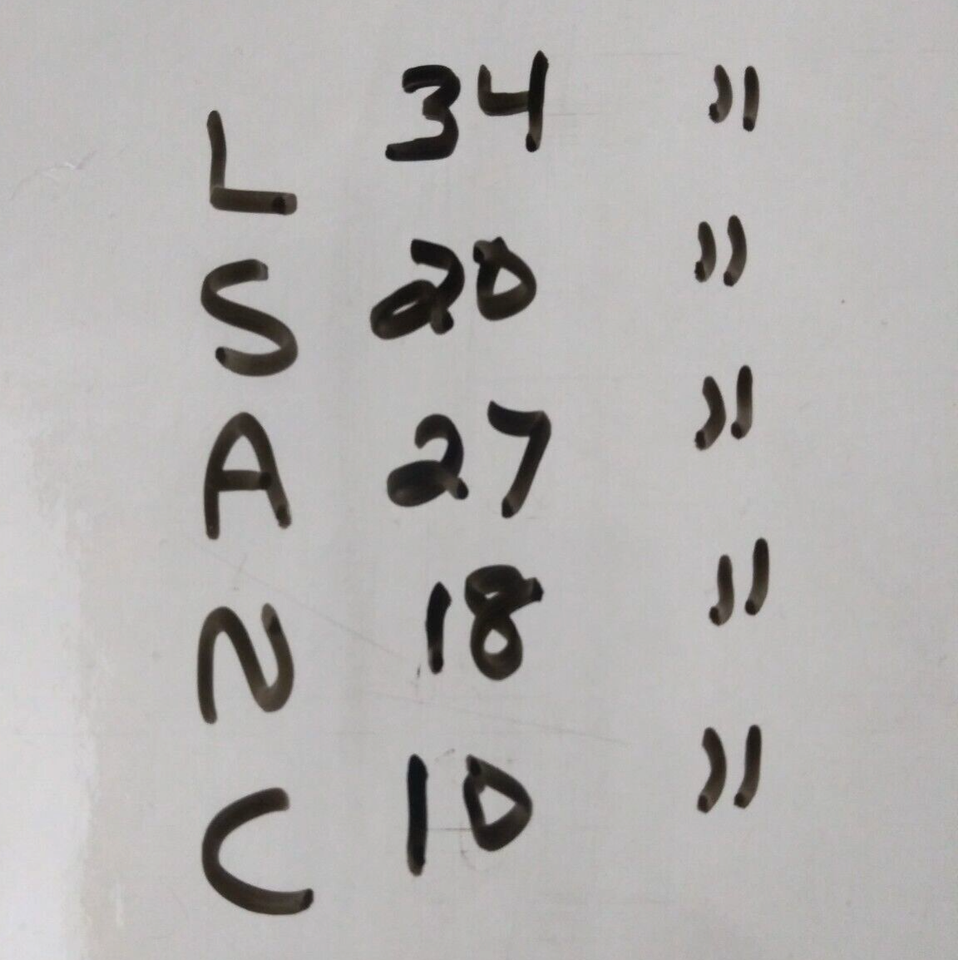 L 34 "
S 20 "
A 27 "
N 18 "
C 10 "